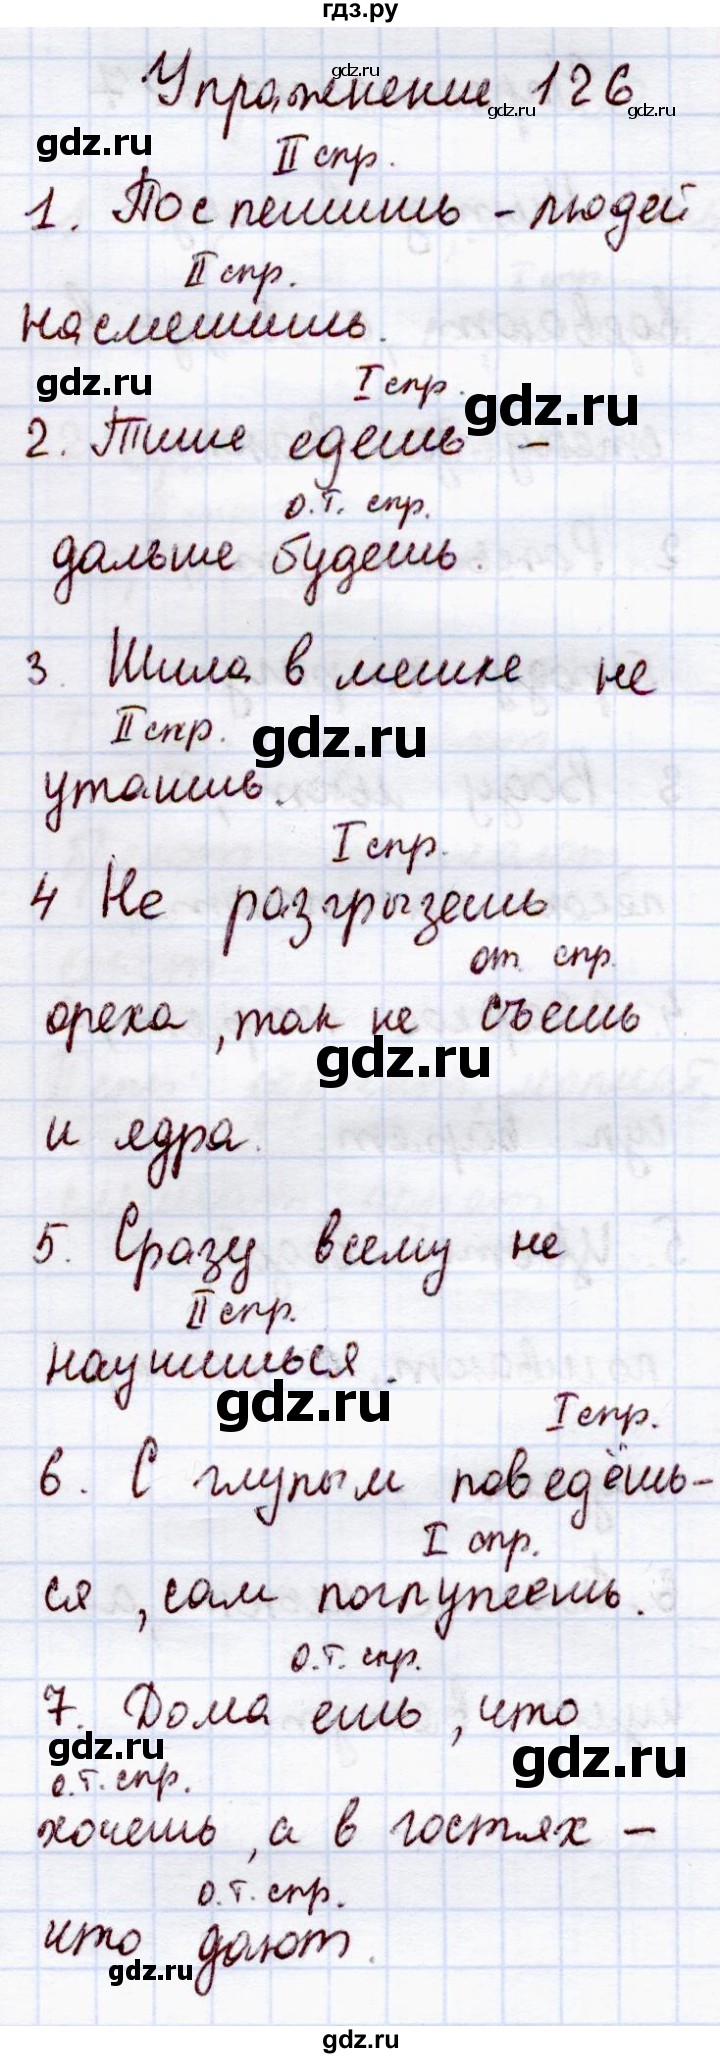 гдз.ру
gdz.ru
Упражнение 126
gdz.ru
gdz.ru
gdz.ru
II спр.
1. Поспешишь – людей
II спр.
насмешишь.
gdz.ru
I спр.
gdz.ru
2. Тише едешь –
о.т. спр.
дальше будешь.
3. Шила в мешке не
II спр.
gdz.ru
утаишь.
I спр.
4 Не разгрызешь
от. спр.
ореха, так не съешь
gdz.ru
и ядра.
5. Сразу всему не
II спр.
научишься.
gdz.ru
I спр.
6. С глупым поведёшь-
I спр.
ся, сам поглупеешь.
о.т. спр.
7. Дома ешь, что
gdz.ru
gdz.ru
о.т. спр.
хочешь, а в гостях –
о.т. спр.
что дают.
gdz.ru
gdz.ru